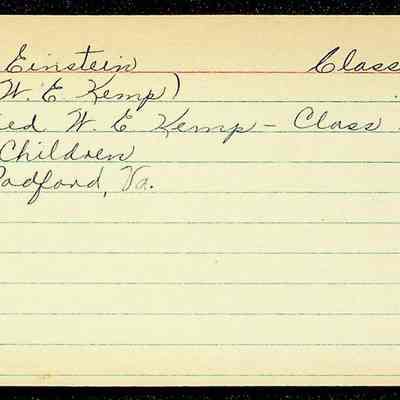 Einstein Class
W. E. Kemp)
ied W. E Kemp - Class
Children
Radford, Va.